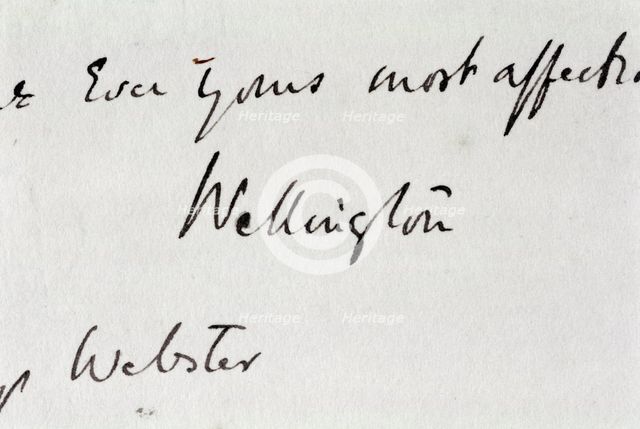 Ever Yours most affectio
Wellington
Webster
Heritage Heritage
Heritage Heritage
Heritage Heritage
©